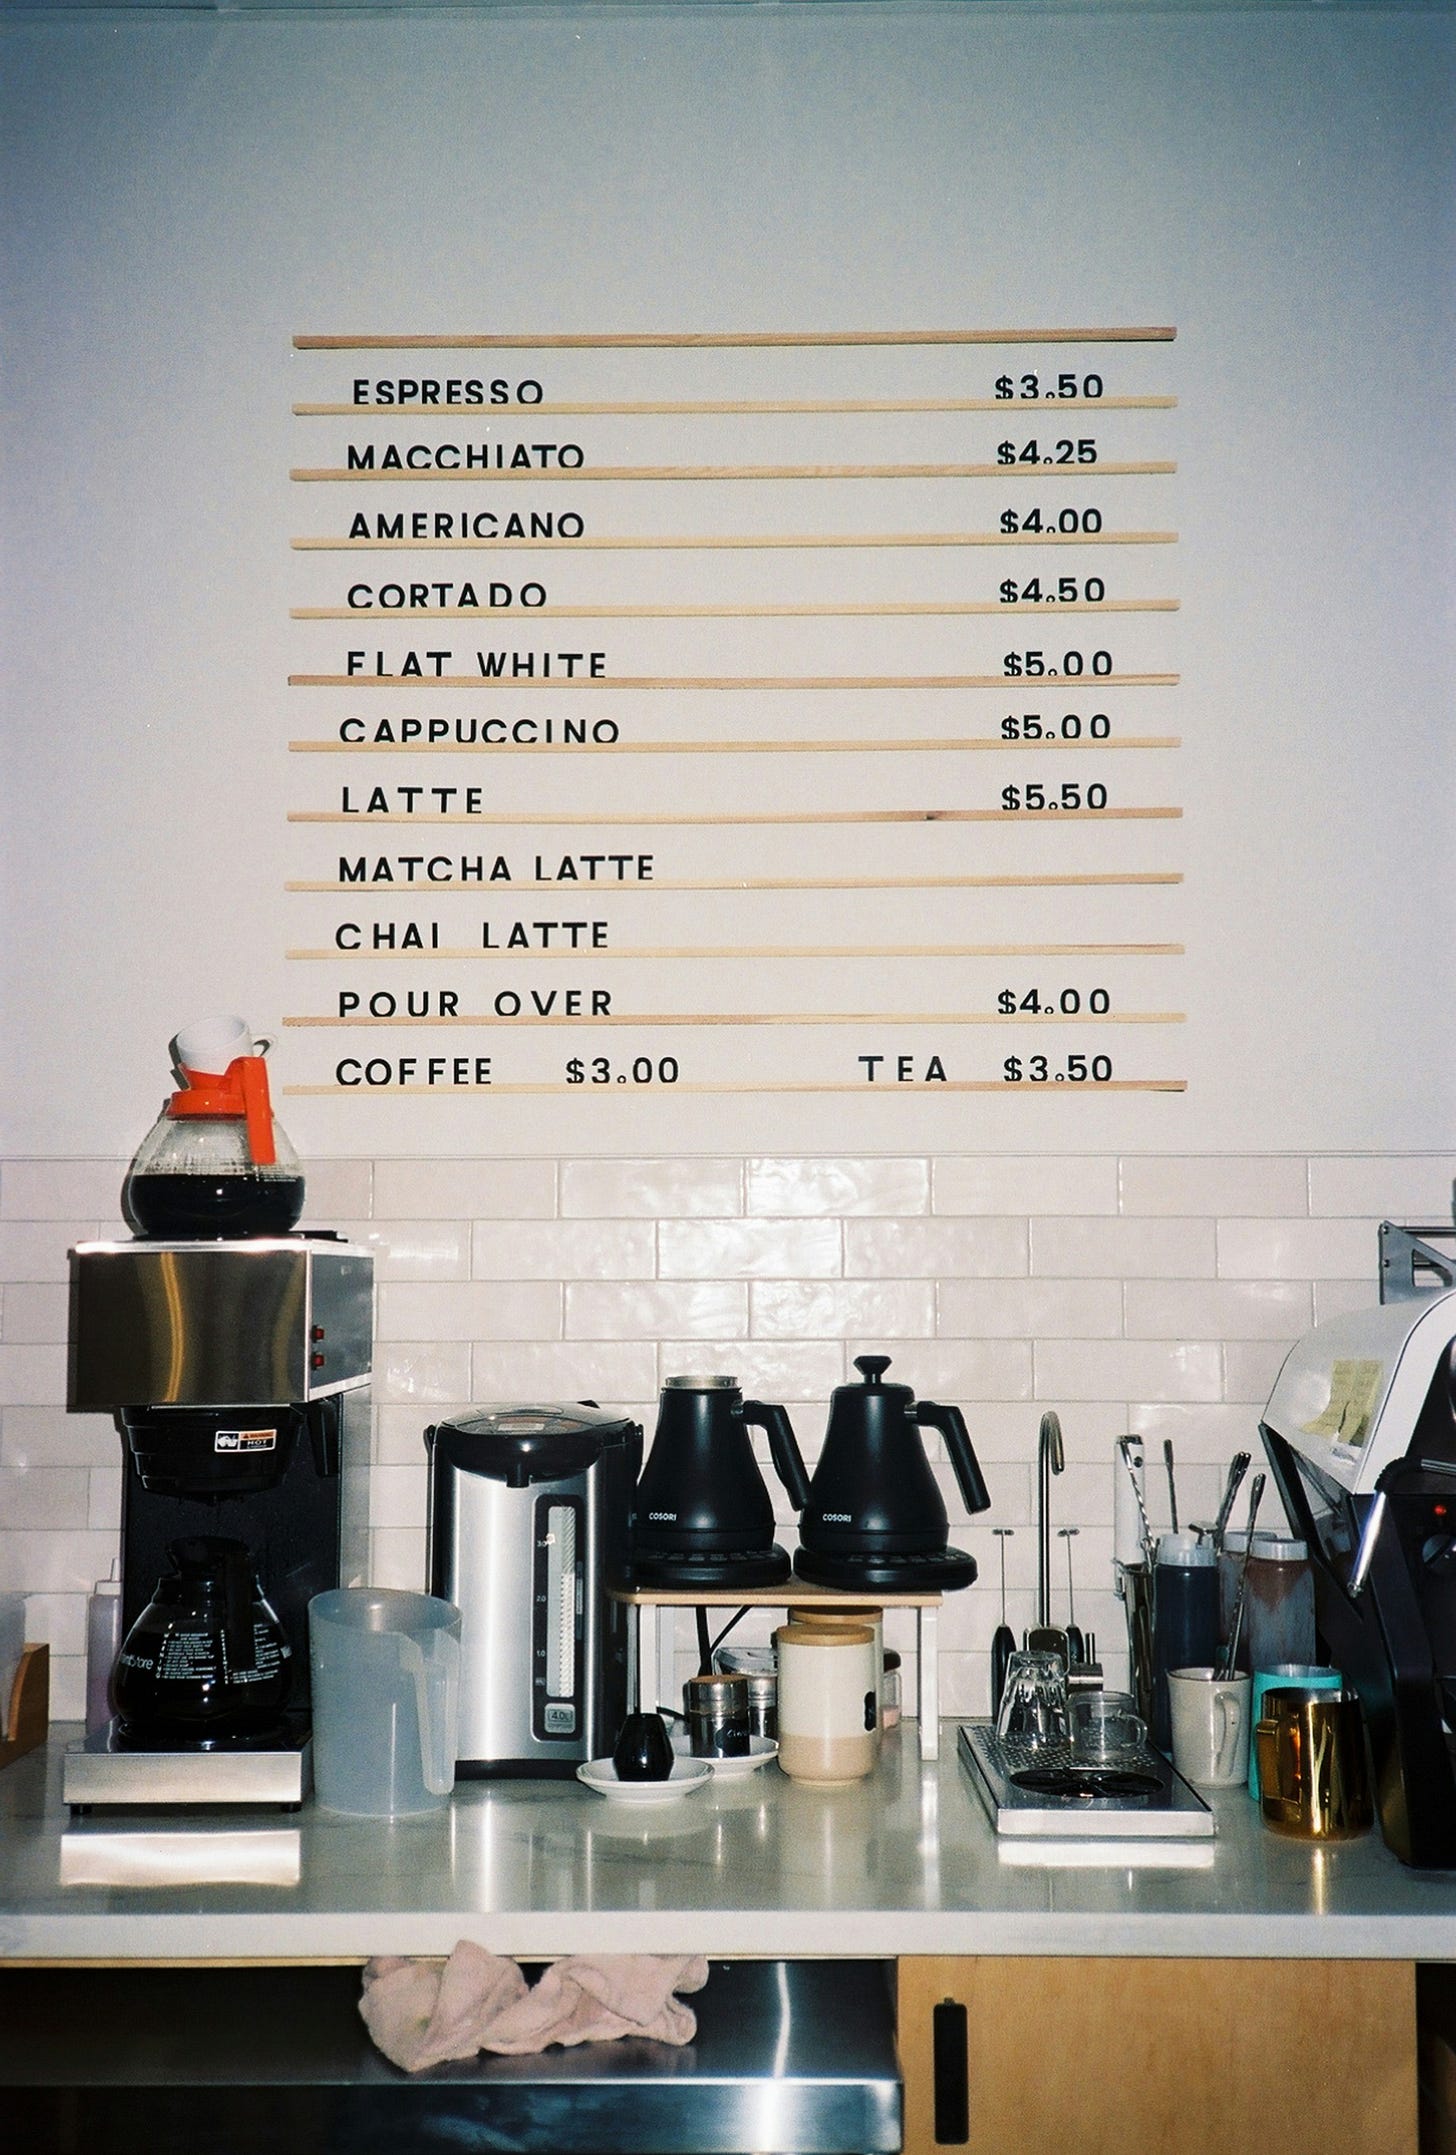 ESPRESSO $3.50
MACCHIATO $4.25
AMERICANO $4.00
CORTADO $4.50
FLAT WHITE $5.00
CAPPUCCINO $5.00
LATTE $5.50
MATCHA LATTE
CHAI LATTE
POUR OVER $4.00
COFFEE $3.00 TEA $3.50
HOT
COSORI COSORI
3.0
2.0
1.0
4.0L